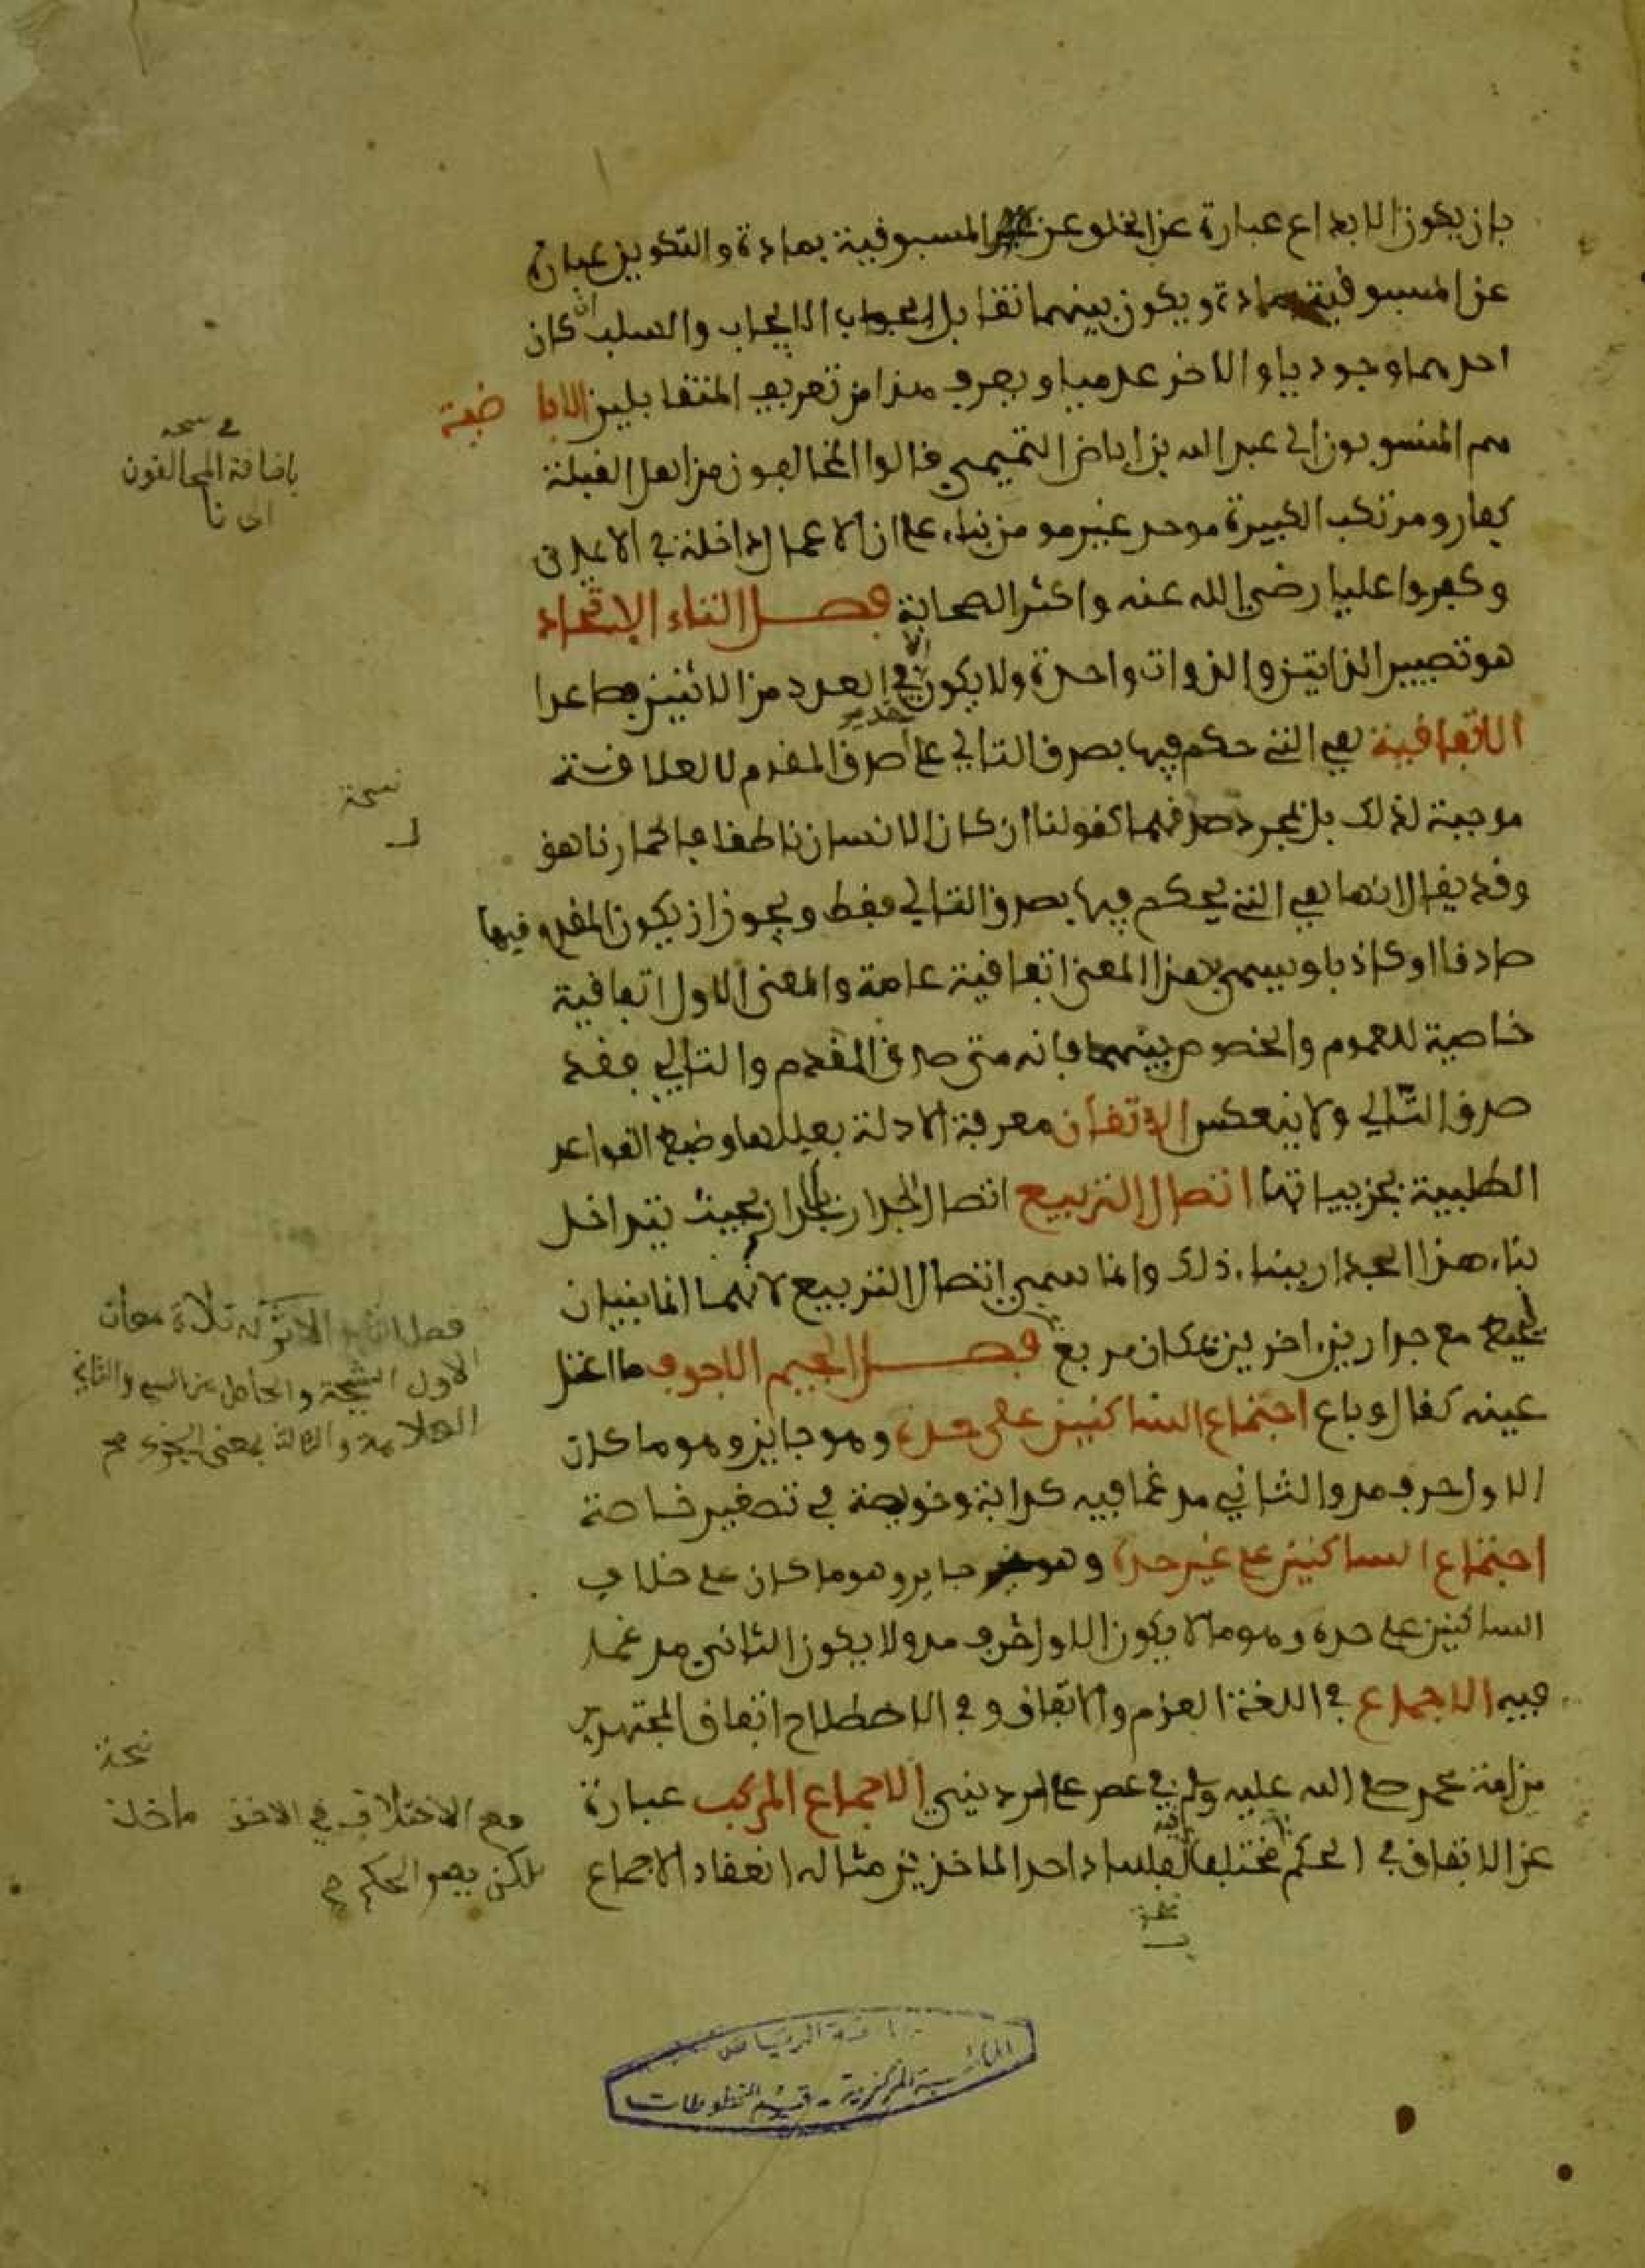 بان يكون الابداع عبارة عن الخلو عن المسبوقية بمادة والتكوين عبارة
عن المسبوقية بمادة ويكون بينهما تقابل الايجاب والسلب ان كان
احدهما وجوديا والاخر عدميا ويعرف هذا من تعريف المتقابلين الاباضية
هم المنسوبون الى عبد الله بن اباض التميمي قالوا المخالفون من اهل القبلة
كفار ومرتكب الكبيرة موحد غير مومن بناء على ان الاعمال داخلة في الايمان
وكفروا عليا رضي الله عنه واكثر الصحابة فصل التاء الاتحاد
هو تصيير الذاتين والذوات واحدة ولا يكون الا في العدد من الاثنين فصاعدا
الاتفاقية هي التي حكم فيها بصدق التالي على تقدير صدق المقدم لا لعلاقة
موجبة لذلك بل لمجرد صدقهما كقولنا ان كان الانسان ناطقا فالحمار ناهق
وقد يقال انها هي التي يحكم فيها بصدق التالي فقط ويجوز ان يكون المقدم فيها
صادقا او كاذبا ويسمى بهذا المعنى اتفاقية عامة والمعنى الاول اتفاقية
خاصية للعموم والخصوص بينهما فانه متى صدق المقدم والتالي فقد
صدق التالي ولا ينعكس الاتقان معرفة الادلة بعللها وضبط القواعد
الكلية بجزيياتها اتصال التربيع اتصال الجدار بالجدار بحيث تتداخل
بناء هذا الجدار ببناء ذلك وانما سمي اتصال التربيع لانهما انما يبنيان
ليحيط مع جدارين اخرين بمكان مربع فصل الجيم الاجوف ما اعتل
عينه كقال وباع اجتماع الساكنين على حدة وهو جايز وهو ما كان
الاول حرف مد والثاني مدغما فيه كدابة وخويصة في تصغير خاصة
اجتماع الساكنين على غير حدة وهو غير جايز وهو ما كان على خلاف
الساكنين على حدة وهو ما لا يكون الاول حرف مد ولا يكون الثاني مدغما
فيه الاجماع في اللغة العزم والاتفاق وفي الاصطلاح اتفاق المجتهدين
من امة محمد صلى الله عليه وسلم في عصر على امر ديني الاجماع المركب عبارة
عن الاتفاق في الحكم مختلفا لفساد احد الماخذين مثاله انعقاد الاجماع
في نسخة
باضافة المخالفون
الى نا
نسخة
لـ
فصل الثاء الاثر له ثلاثة معان
الاول النتيجة والحاصل من الشي والثاني
العلامة والثالث بمعنى الجزء صح
نسخة
مع الاختلاف في الماخذ
لكن يصير الحكم
جامعة الرياض
المكتبة المركزية - قسم المخطوطات